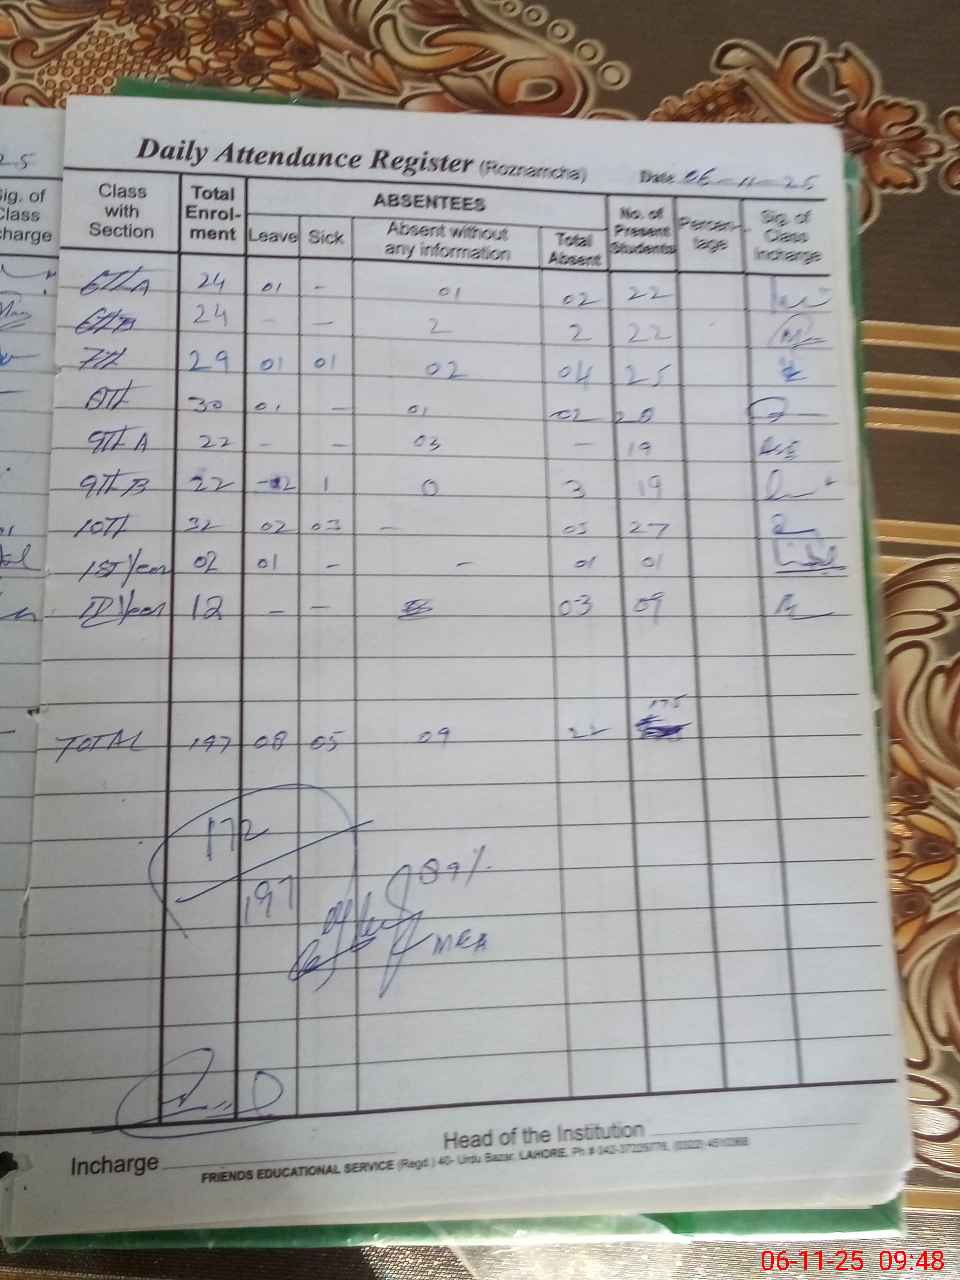 25
Sig. of
Class
charge
Daily Attendance Register (Roznamcha) Date 06-11-25
Class with Section Total Enrol-ment ABSENTEES No. of Present Students Percen-tage Sig. of Class Incharge
Leave Sick Absent without any information Total Absent
6th A 24 01 - 01 02 22
6th B 24 - - 2 2 22
7th 29 01 01 02 04 25
8th 30 01 - 01 02 28
9th A 22 - - 03 - 19
9th B 22 1 0 3 19
10th 32 02 03 - 05 27
1st year 02 01 - - 01 01
II year 12 - - 03 09
175
TOTAL 197 08 05 09 22
172
197
89%
Incharge
Head of the Institution
FRIENDS EDUCATIONAL SERVICE (Regd.) 40- Urdu Bazar, LAHORE, Ph #
06-11-25 09:48